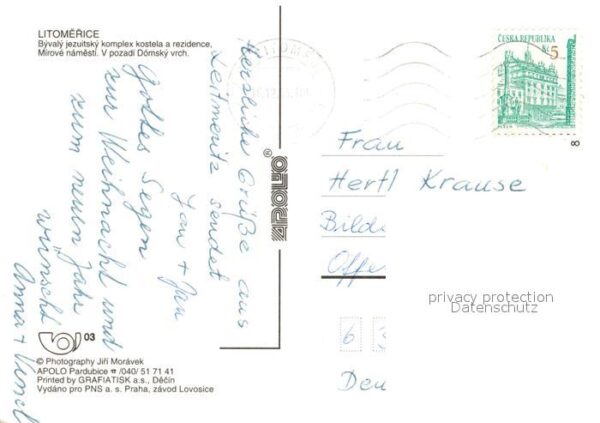 LITOMĚŘICE
Bývalý jezuitský komplex kostela a rezidence,
Mírové náměstí. V pozadí Dómský vrch.
Herzliche Grüße aus
Leitmeritz sendet
Jan + Jan
Gottes Segen
zur Weihnacht und
zum neuen Jahr
wünscht
Anna +
APOLO®
ČESKÁ REPUBLIKA
Kč 5
8
Frau
Hertl Krause
Bild
Offe
privacy protection
Datenschutz
6 3
Deu
03
© Photography Jiří Morávek
APOLO Pardubice ☎ /040/ 51 71 41
Printed by GRAFIATISK a.s., Děčín
Vydáno pro PNS a. s. Praha, závod Lovosice